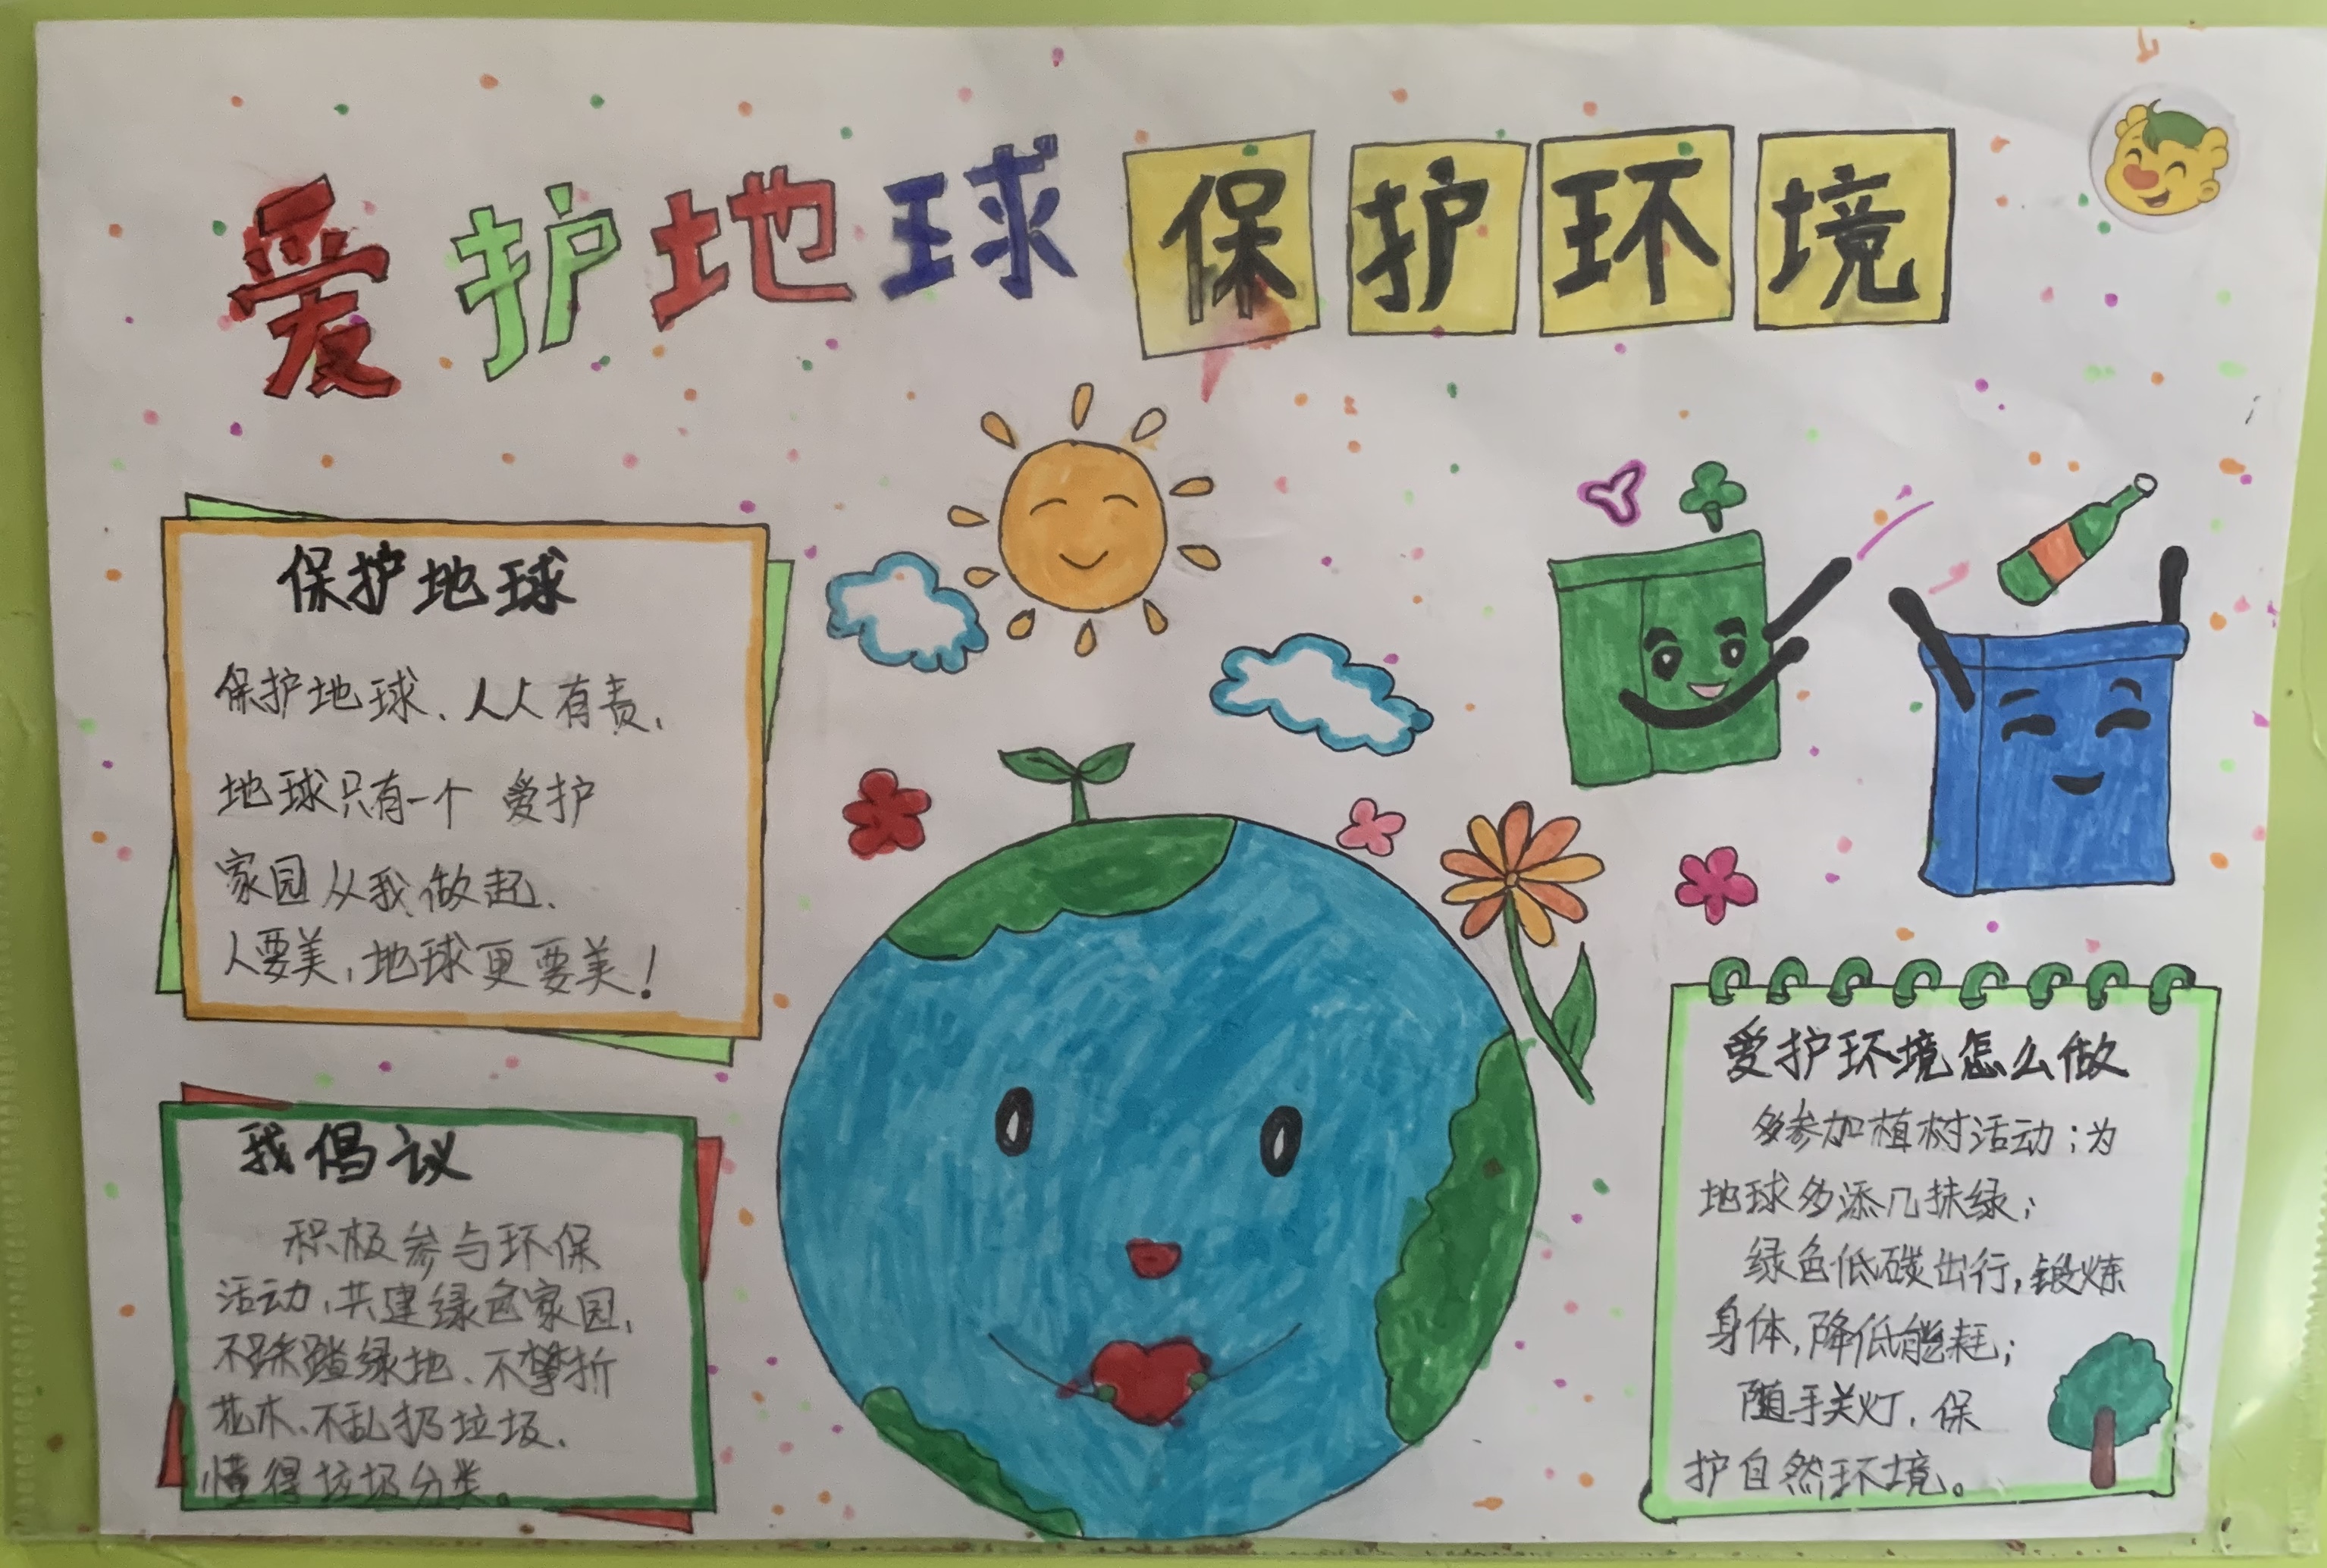 爱护地球保护环境
保护地球
保护地球、人人有责、
地球只有一个 爱护
家园从我做起、
人要美,地球更要美!
我倡议
积极参与环保
活动,共建绿色家园,
不踩踏绿地、不攀折
花木、不乱扔垃圾、
懂得垃圾分类。
爱护环境怎么做
多参加植树活动;为
地球多添几抹绿;
绿色低碳出行,锻炼
身体,降低能耗;
随手关灯,保
护自然环境。